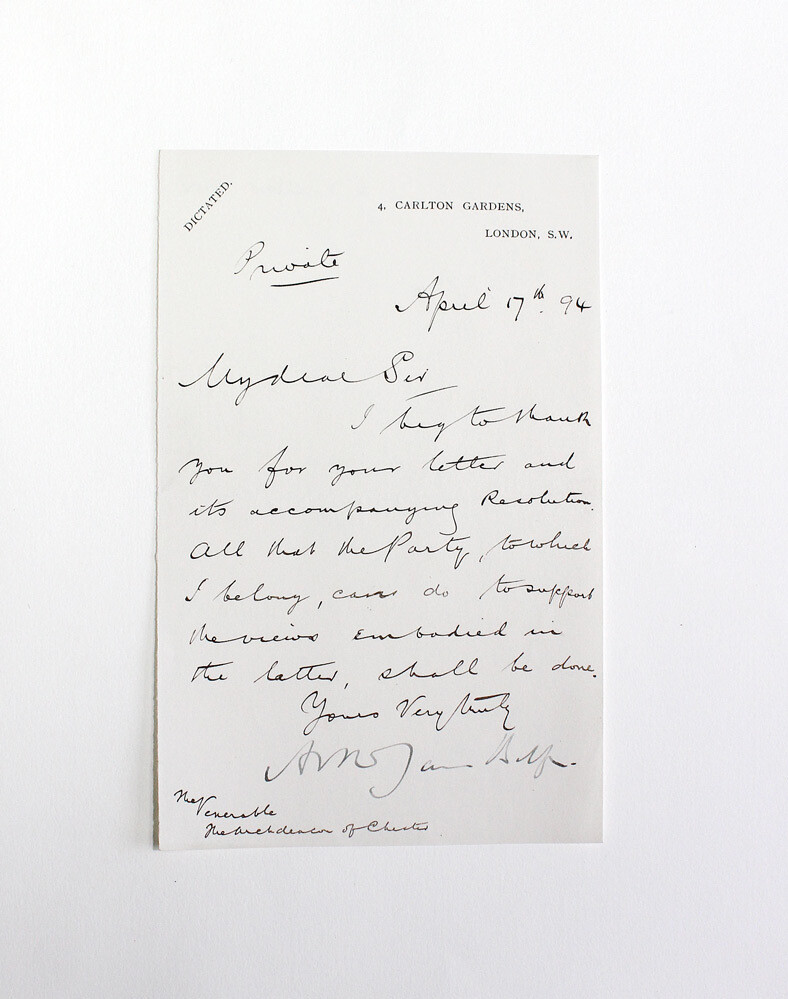 DICTATED.
4, CARLTON GARDENS,
LONDON, S.W.
Private
April 17th. 94
My dear Sir
I beg to thank
you for your letter and
its accompanying Resolution.
All that the Party, to which
I belong, can do to support
the views embodied in
the latter, shall be done.
Yours Very truly
Arthur James Balfour
The Venerable
The Archdeacon of Chester